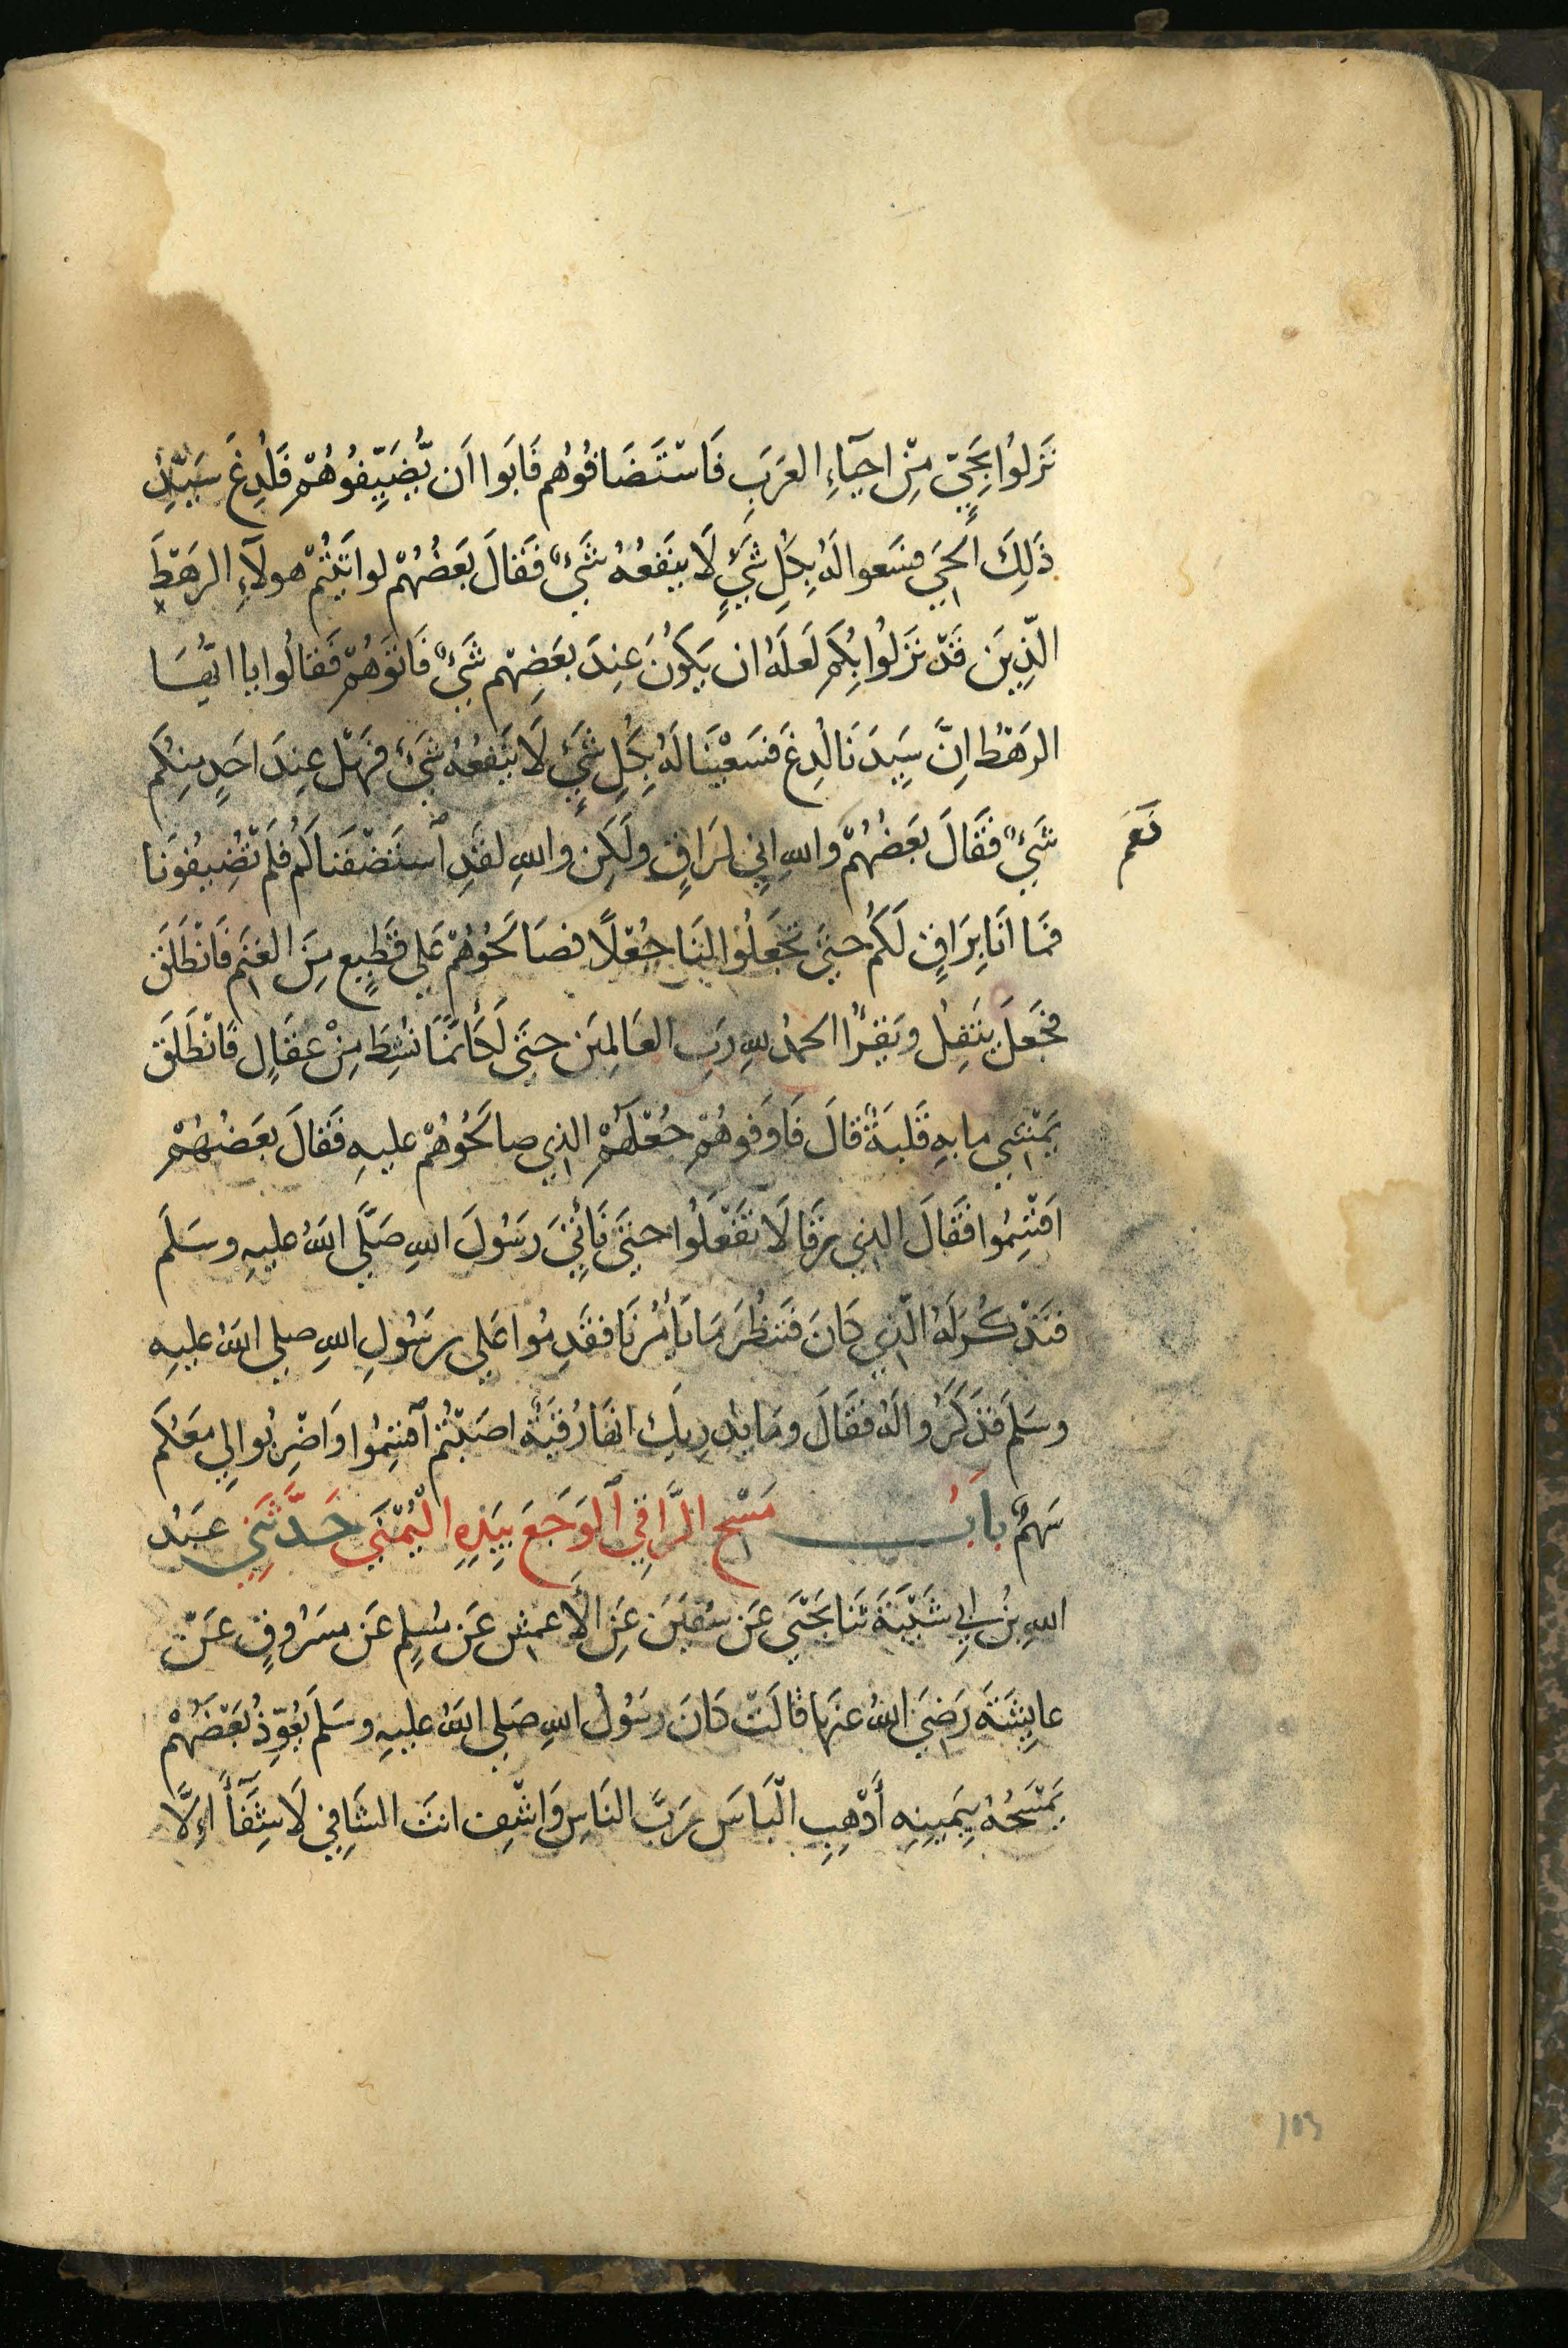 نَزَلُوا بِحَيٍّ مِنْ اَحيَآءِ العَرَبِ فَاسْتَضَافُوُهم فَابَوا اَن يُّضَيِّفُوُهُمْ فَلُدِغَ سَيِّدُ
ذَلِكَ الحَيّ فسَعوا لَهُ بِكُلِ شَيْءٍ لَا يَنفَعُهُ شَيْءٌ فَقَالَ بَعَضُهُمْ لوا تَيْتُمْ هولَآءِ الرَهْطِ
الّذِينَ قَدْ نَزَلُوا بِكُمِ لَعَلَهُ ان يَكوُنَ عِندَ بعَضِهْم شَيْءٌ فَاتوَهُمْ فَقالُوا يا ايُّهَا
الرهَطُ اِنَّ سَيِدَنَا لُدِغَ فسَعَيْنَا لَهُ بِكُلِ شَيْءٍ لَا يَنفَعُهُ شَيْءٌ فهَلْ عِندَ احَدٍ مِنكُم
نَعَم
شَيْءٌ فَقَالَ بَعَضُهُمْ وَاللهِ اِنِي لرَاقٍ وَلَكِن وَاللهِ لقَدِ اسْتَضَفنَاكُم فَلَم تُضيِفُونَا
فمَا انَا بِرَاقٍ لَكُم حتىَ تَجعَلُوا لنَا جُعْلًا فصَالَحُوُهُمْ عَلى قطِيعٍ مِنَ الغَنَم فَانْطَلَقَ
فجَعَلَ يَتفِلُ وَيَقرَأُ الحمَدُ للهِ رَبِ العَالمِينَ حتىَ لَكَأَنمَّا نُشِطَ مِنْ عقَالٍ فَانْطَلَقَ
يَمْشِي ما بهِ قَلَبَةٌ قَالَ فَاوَفوهُمْ جُعْلَهُم الذِي صالَحُوُهُمْ عليهِ فَقَالَ بعَضُهُمْ
اقْتَسِمُوا فَقَالَ الذِي رَقَا لَا تفَعَلُوا حتىَ نَأتِيَ رَسُولَ اللهِ صَلَّى اللهُ عليهِ وسَلَم
فنَذْكُرَ لَهُ الّذِي كانَ فنَنظُرَ مَا يَأمُرُنَا فقَدِمُوا عَلى رسُولِ اللهِ صلى اللهُ عليهِ
وسَلَم فَذكَرُوا لَهُ فقَالَ ومَا يُدرِيكَ انهَا رُقيَةٌ اصَبْتُم اقْتَسِمُوا وَاضْرِبُوا لِي معَكُم
سَهْمٌ بابُ مَسْحِ الرَّاقِي الوَجَعَ بِيَدِهِ الْيُمْنَى حَدَّثَنِي عبَدُ
اللهِ بنُ ابِي شَيْبَةَ ثَنا يَحْيَى عَن سُفيَنَ عَنِ الأَعمشِ عَن مُسْلِمٍ عَن مسَرُوقٍ عَنْ
عايِشَةَ رَضِيَ اللهُ عنهَا قالَتْ كانَ رسُولُ اللهِ صلى اللهُ عليهِ وسَلَم يُعَوِّذُ بَعْضَهُمْ
يَمْسَحُهُ بِيَمِينِهِ أَذْهِبِ الْبَاسَ رَبَّ النَاسِ وَاشْفِ انتَ الشَافِي لَا شِفَآءَ اِلَّا
103